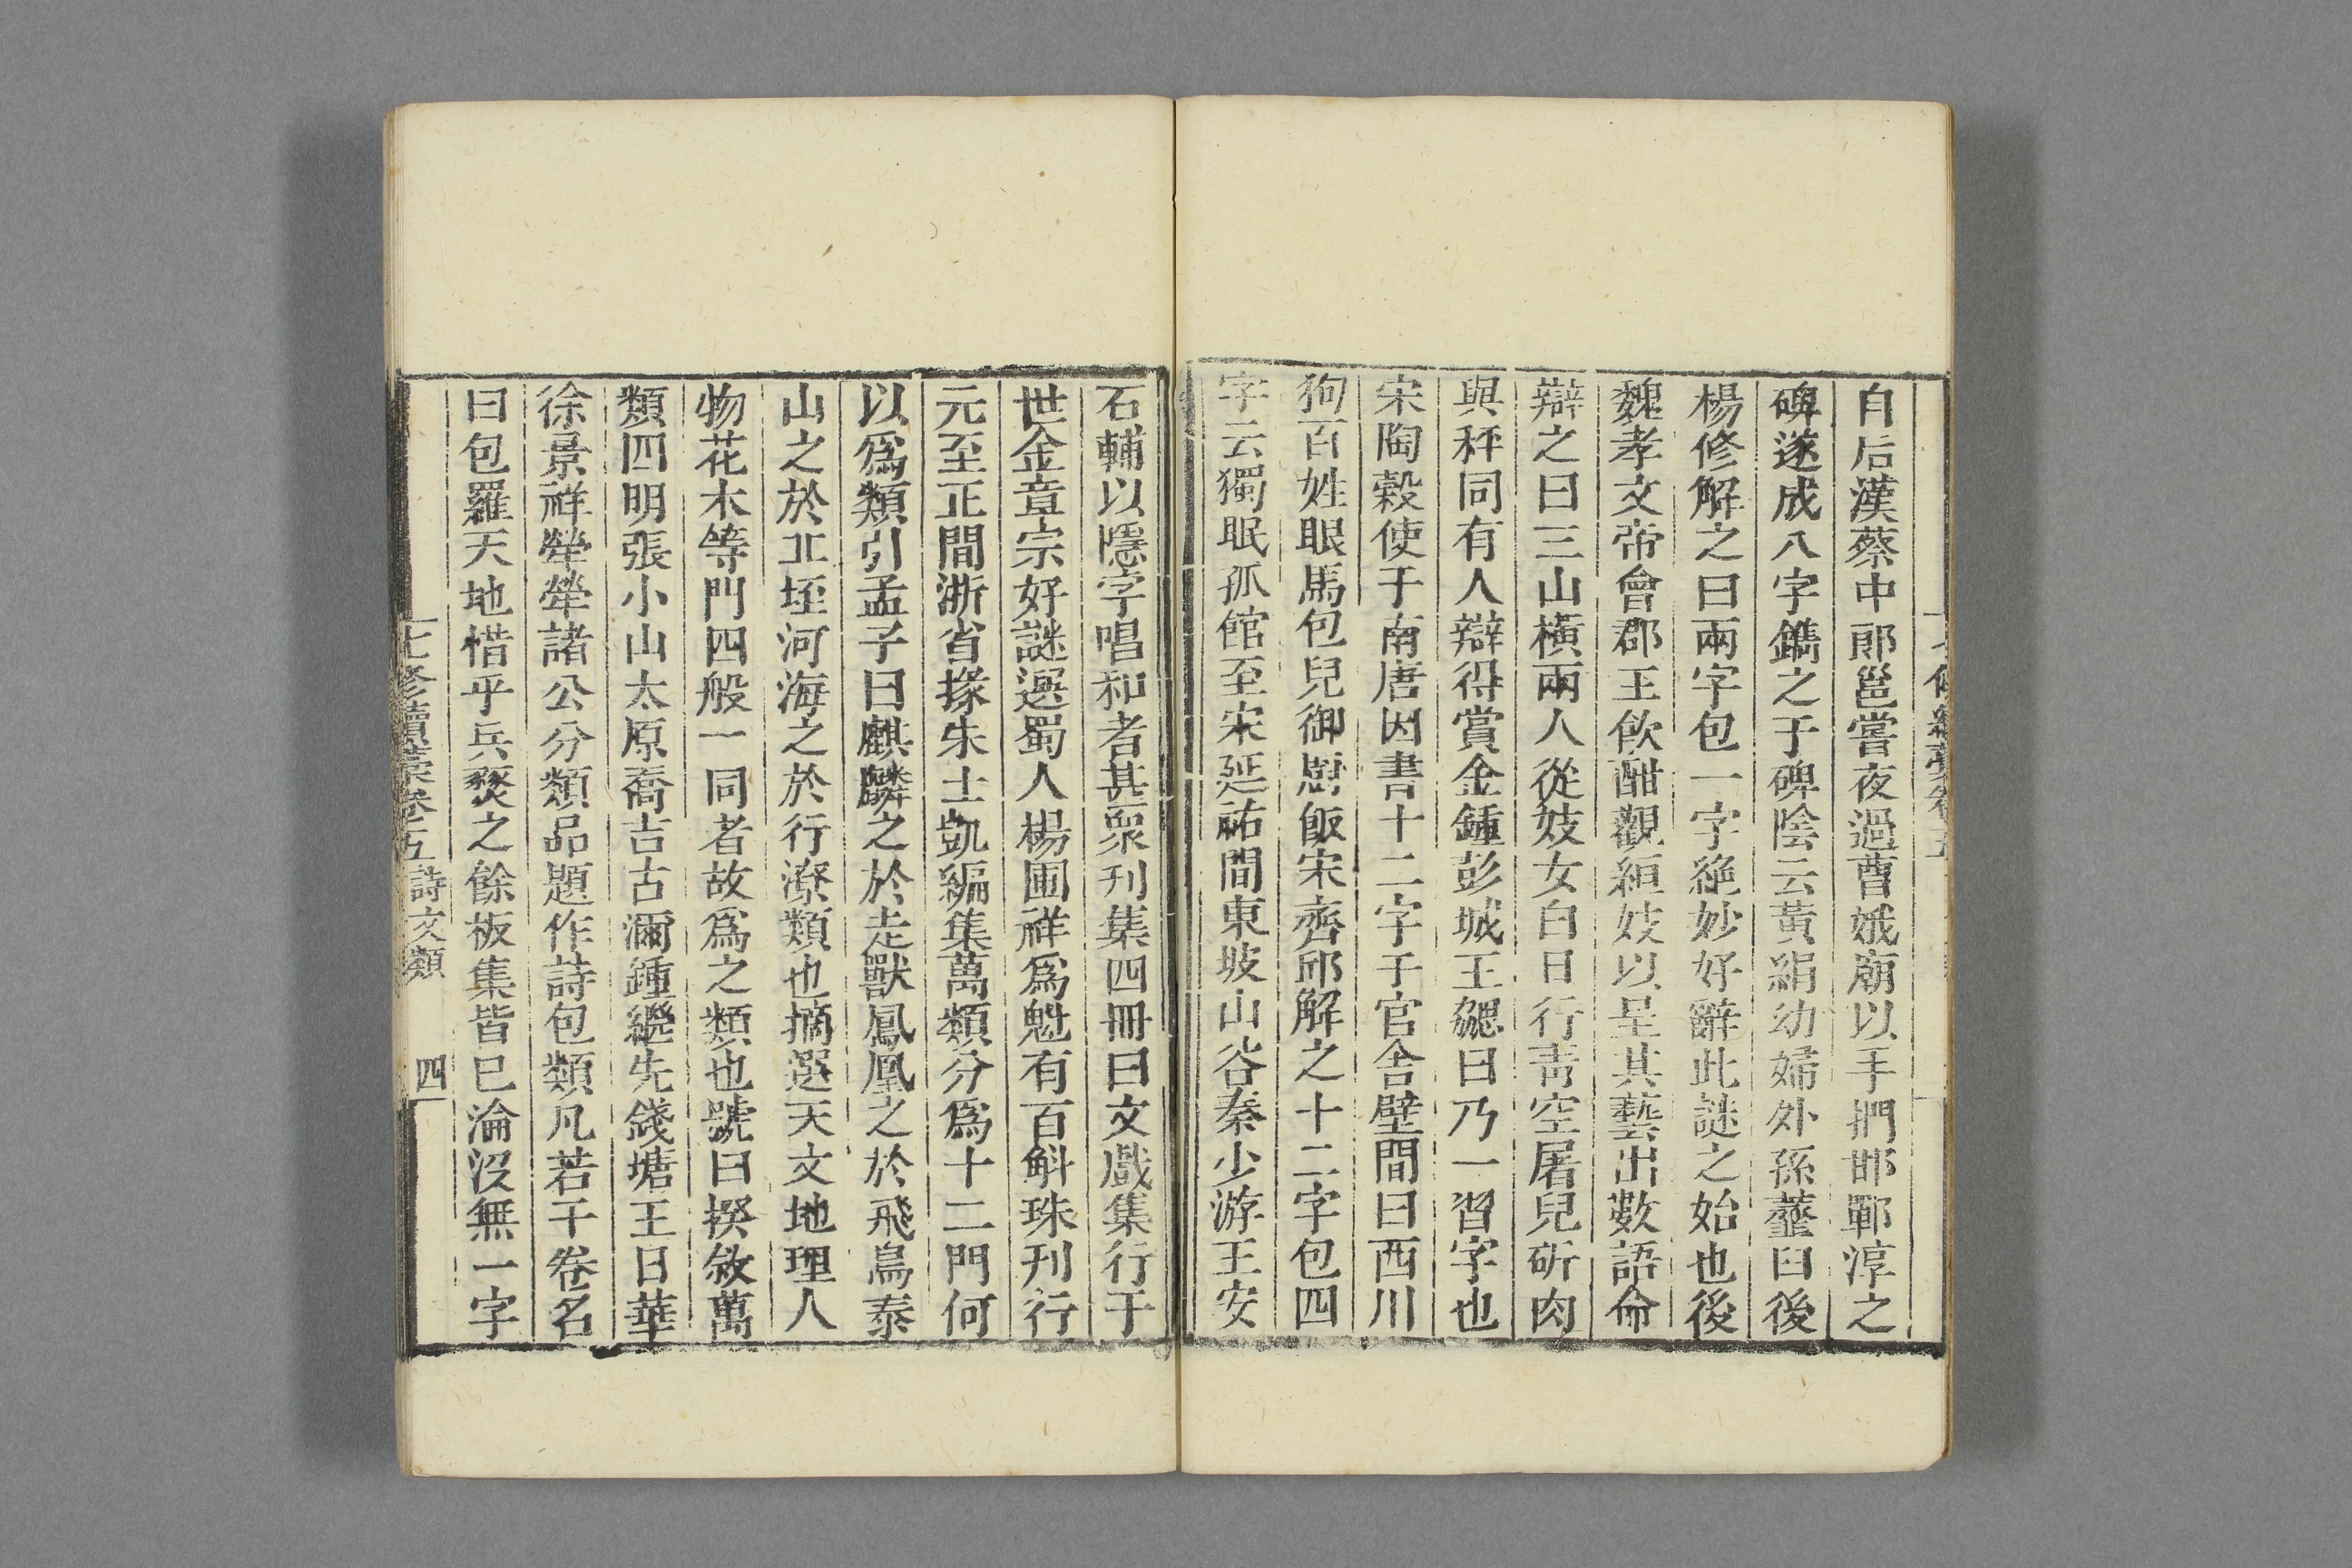 自后漢蔡中郎邕嘗夜過曹娥廟以手捫邯鄲淳之
碑遂成八字鐫之于碑陰云黃絹幼婦外孫虀臼後
楊修解之曰兩字包一字絕妙好辭此謎之始也後
魏孝文帝會郡王飲酣觀絙妓以呈其藝出數語命
辯之曰三山橫兩人從妓女白日行靑空屠兒斫肉
與秤同有人辯得賞金鍾彭城王勰曰乃一習字也
宋陶穀使于南唐因書十二字于官舍壁間曰西川
狗百姓眼馬包兒御廚飯宋齊邱解之十二字包四
字云獨眠孤館至宋延祐間東坡山谷秦少游王安
石輔以隱字唱和者甚衆刋集四冊曰文戲集行于
世金章宗好謎選蜀人楊圃祥爲魁有百斛珠刋行
元至正間浙省掾朱士凱編集萬類分爲十二門何
以爲類引孟子曰麒麟之於走獸鳳凰之於飛鳥泰
山之於丘垤河海之於行潦類也摘選天文地理人
物花木等門四般一同者故爲之類也號曰揆敘萬
類四明張小山太原喬吉古瀰鍾繼先錢塘王日華
徐景祥犖犖諸公分類品題作詩包類凡若干卷名
曰包羅天地惜乎兵燹之餘板集皆已淪沒無一字
七修續藁卷五 詩文類 四